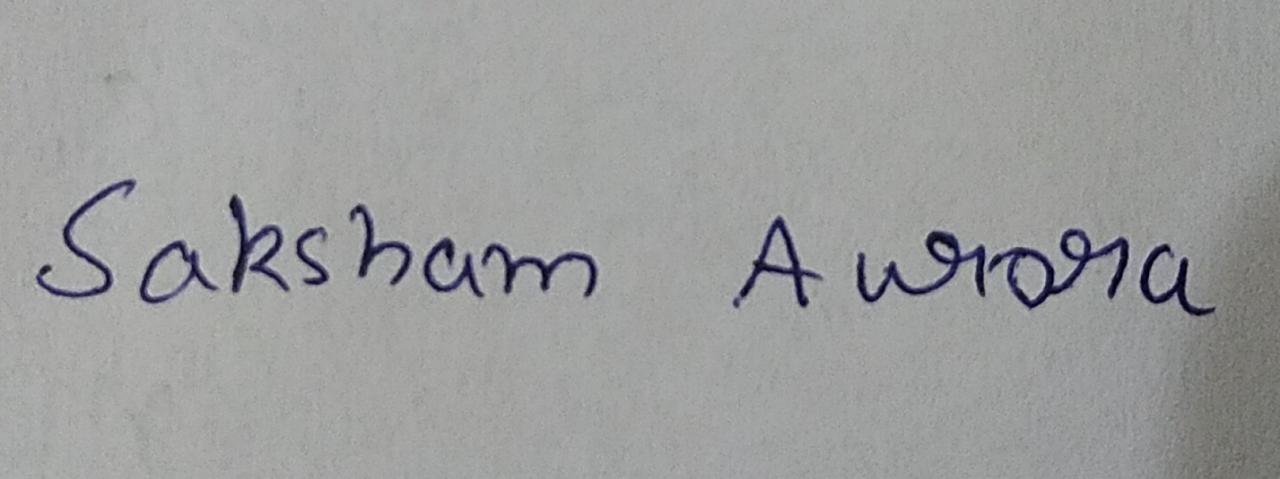 Saksham Aurora